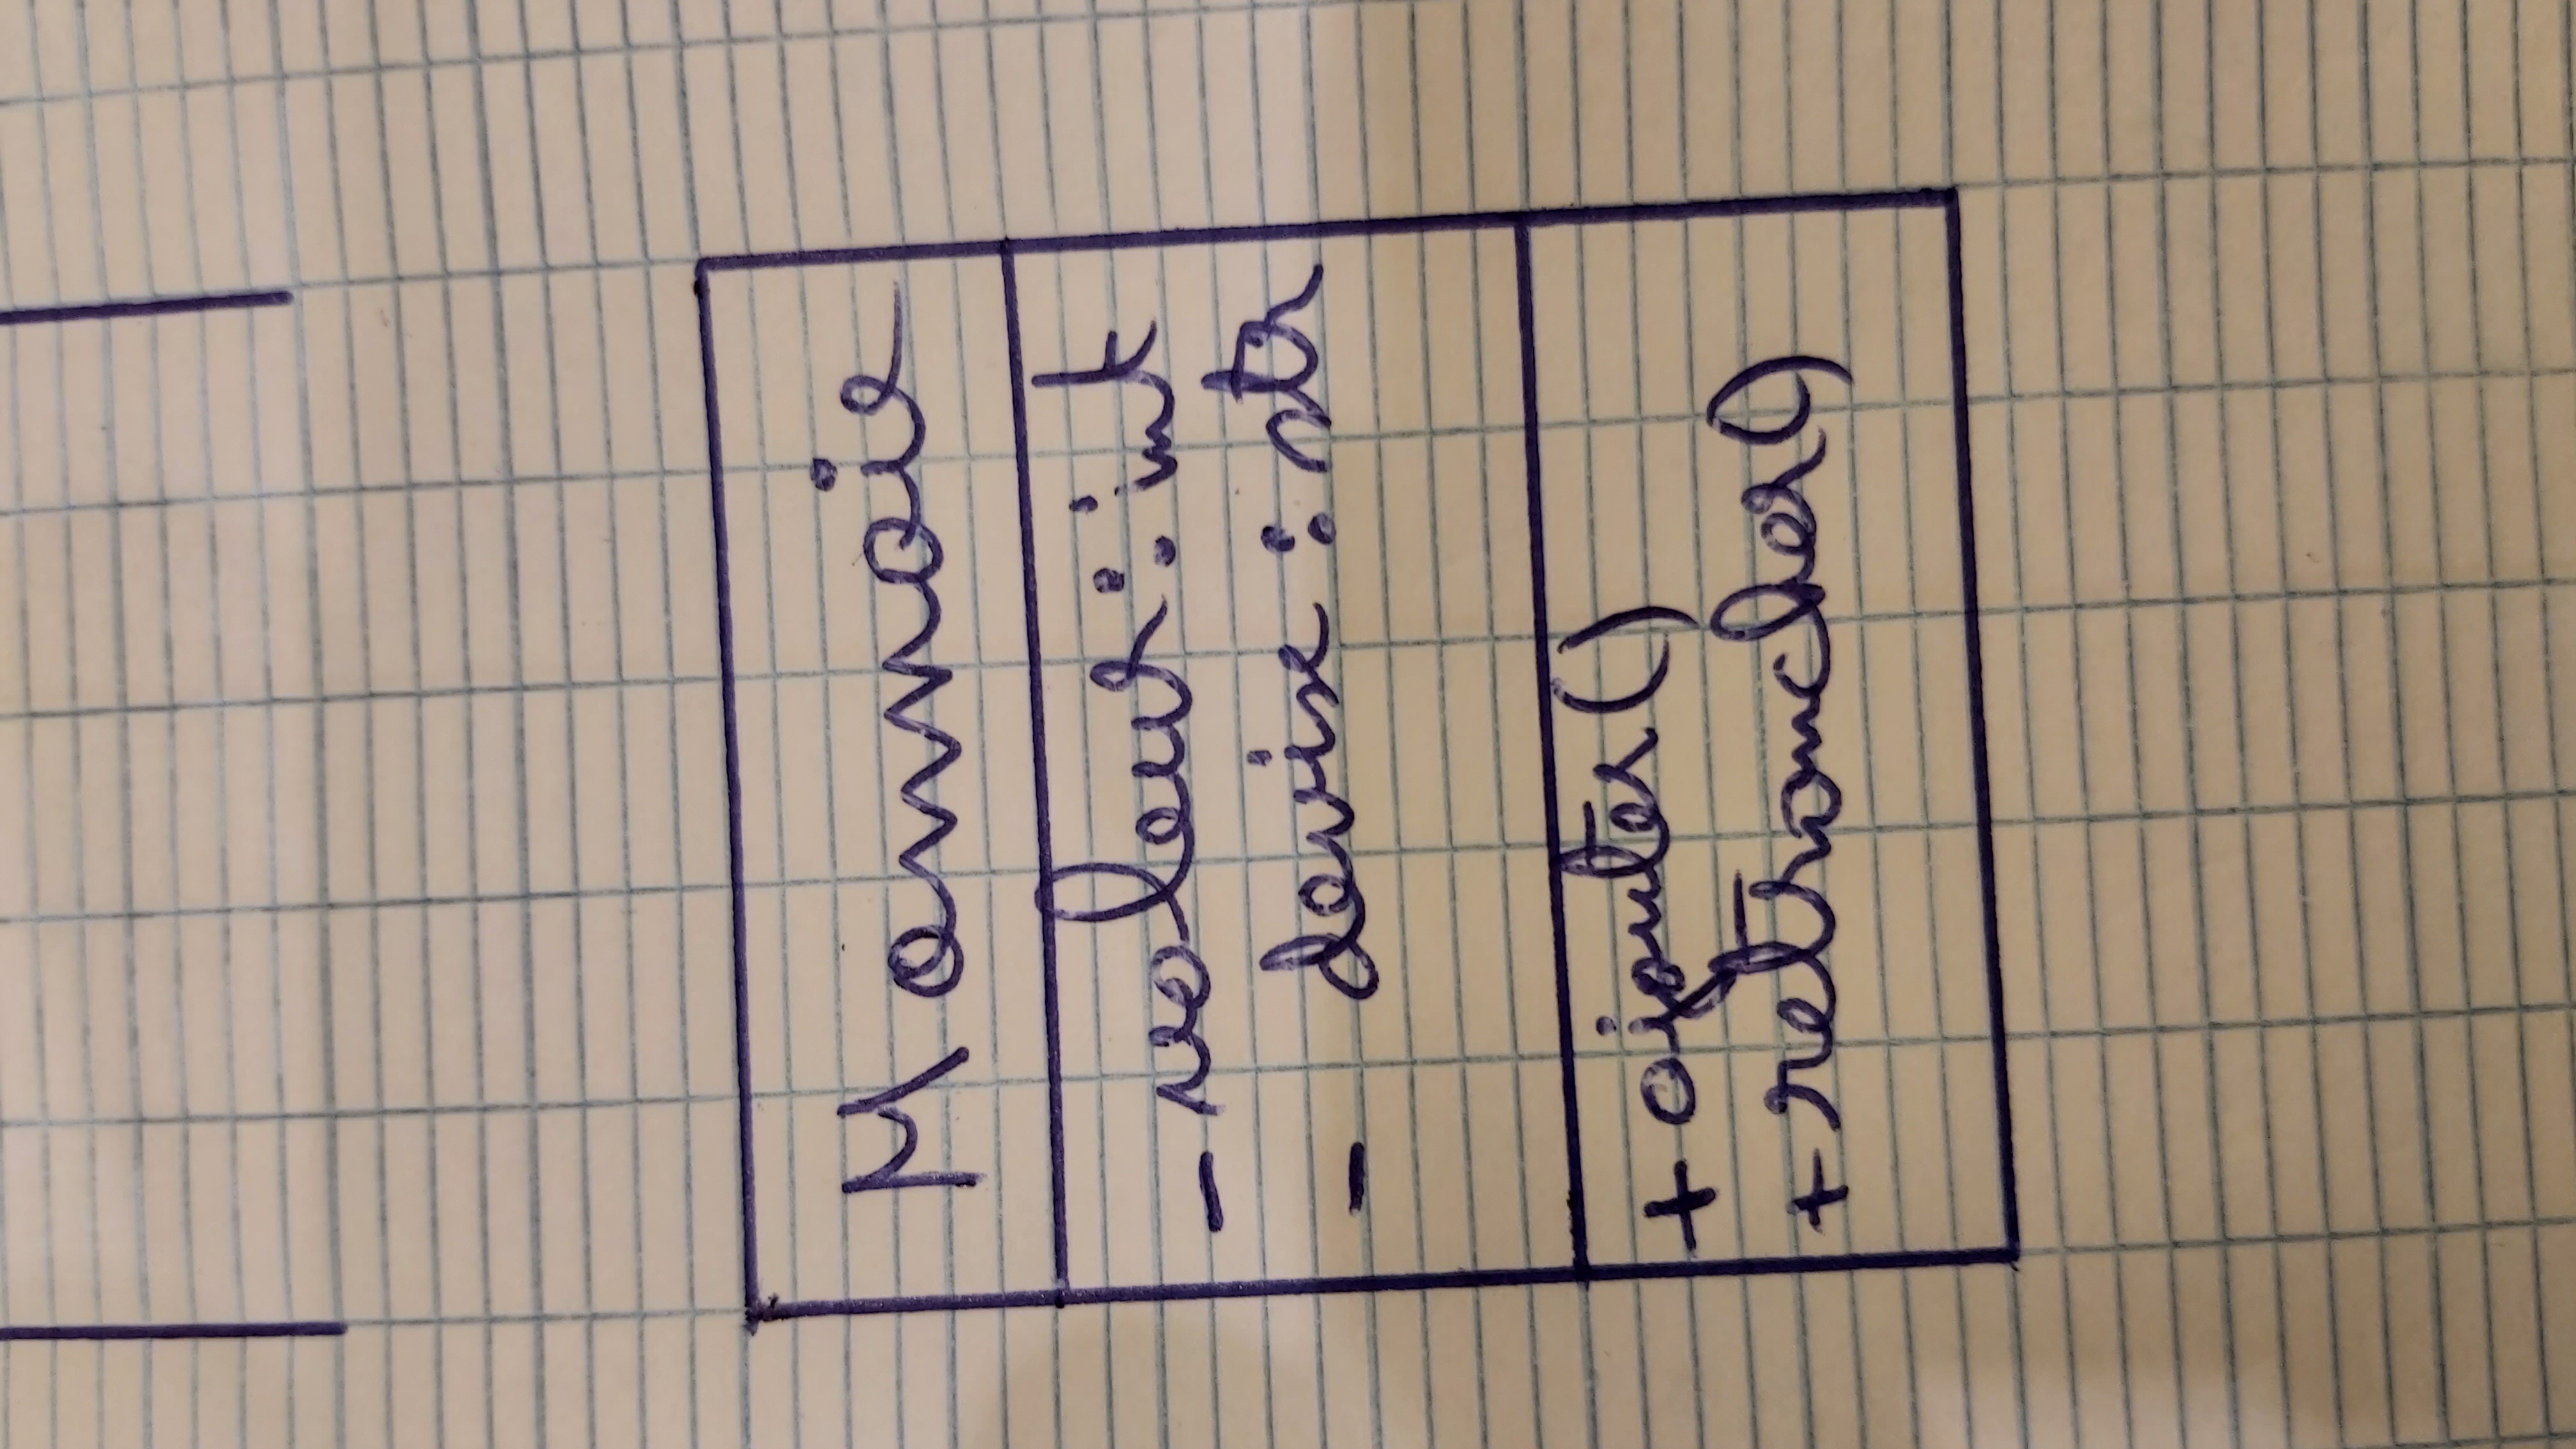 Monnaie
- valeur : int
- devise : str
+ ajouter()
+ retrancher()